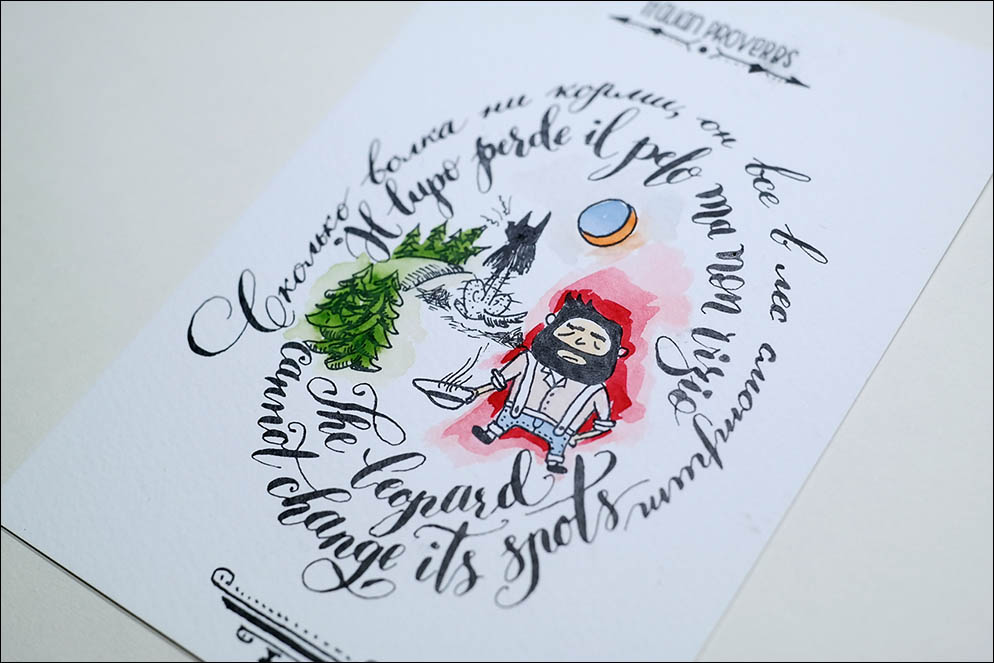 ITALIAN PROVERBS
Сколько волка ни корми, он все в лес смотрит
Il lupo perde il pelo ma non vizio
The leopard
cannot change its spots